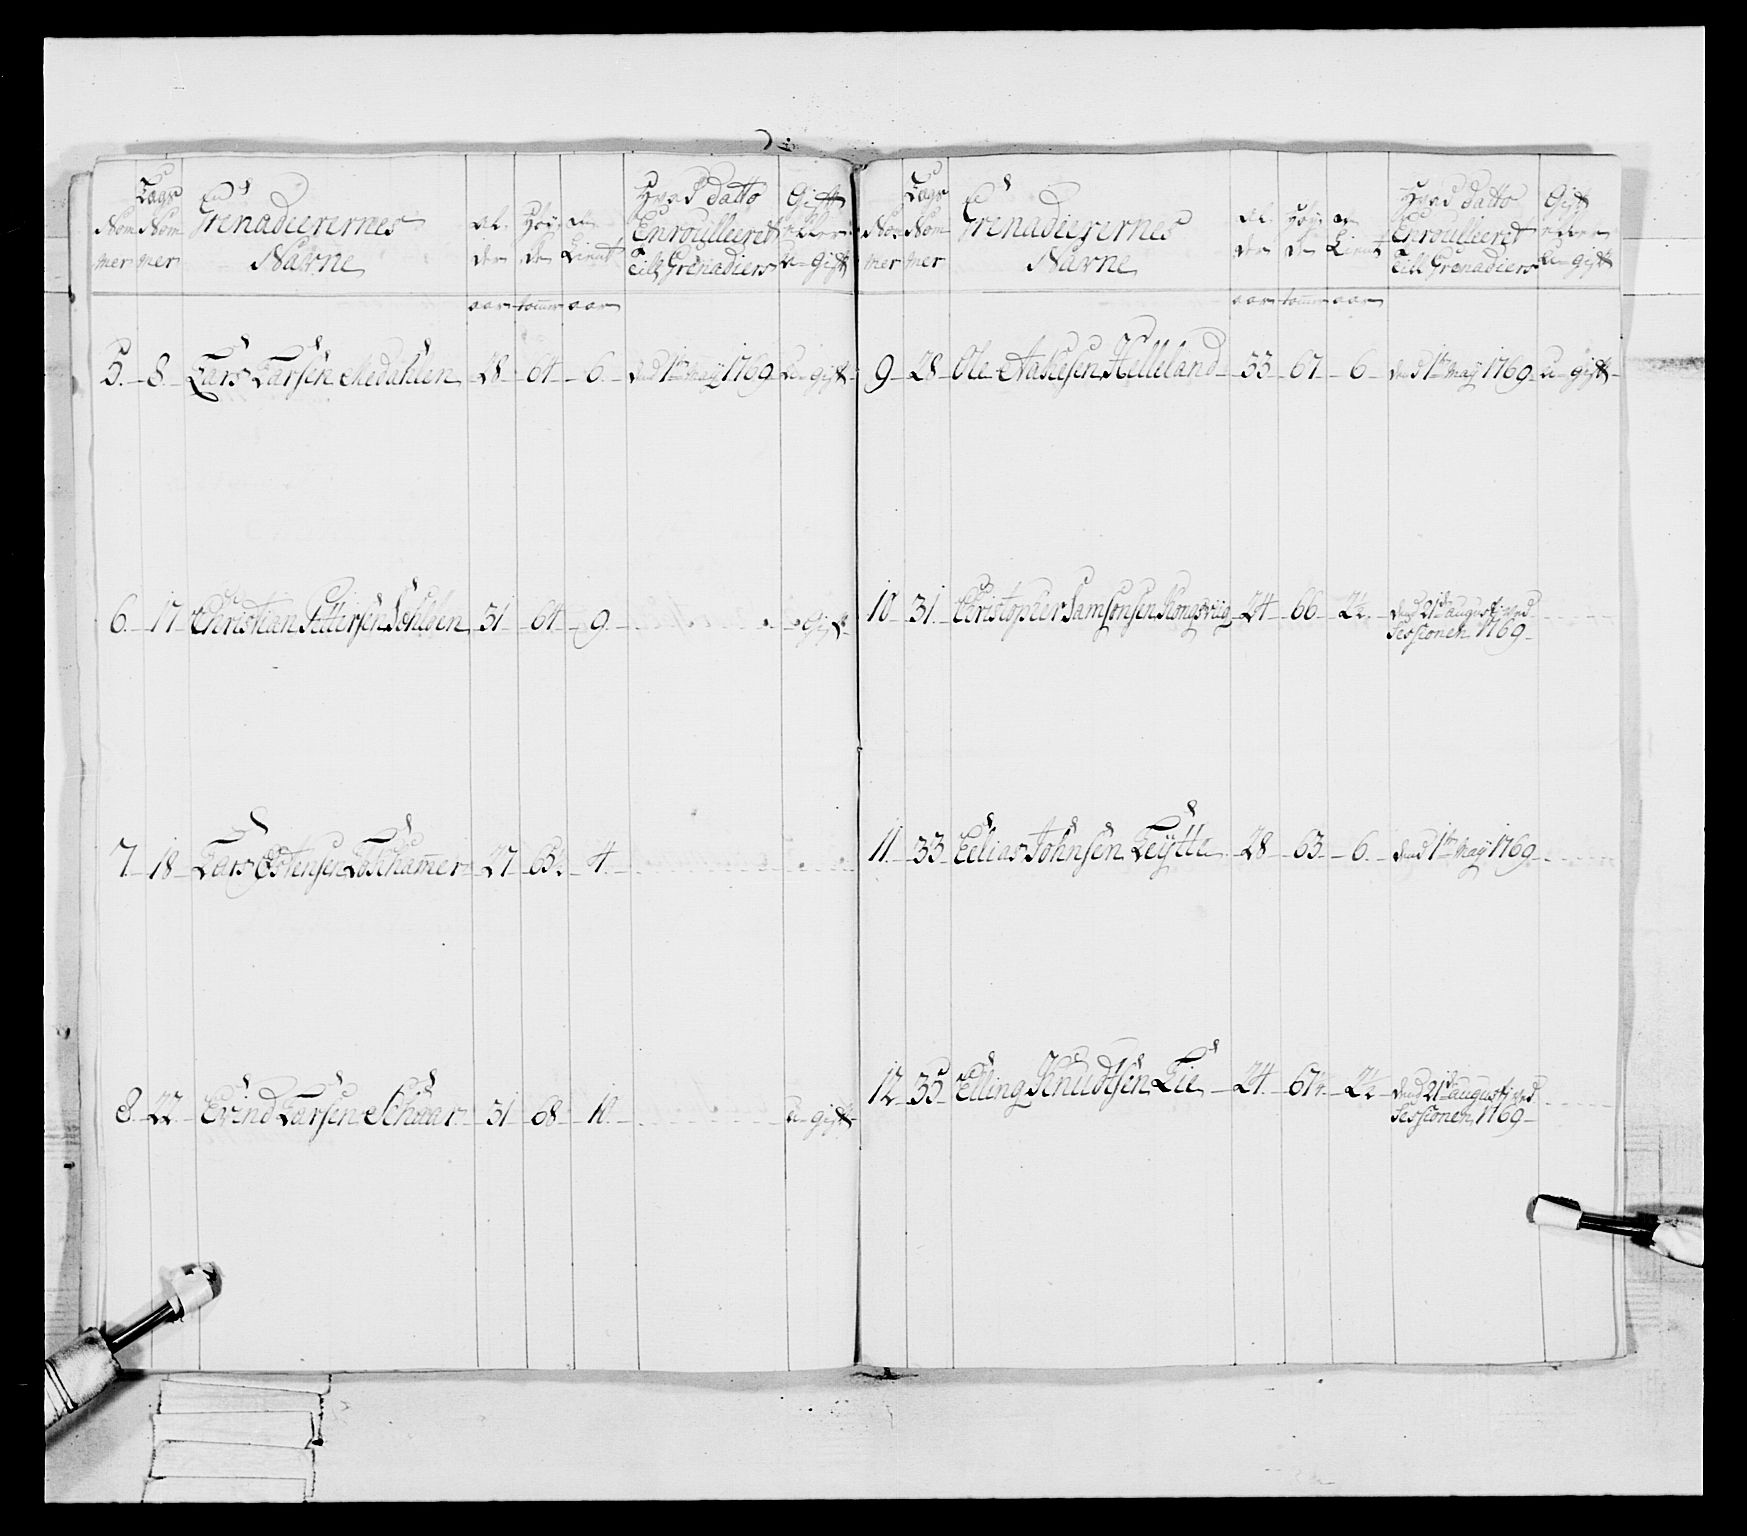 Nommer
Lags Nommer
Grenadeerernes Navne
alder
Høyde
Hvad datto Enroulleeret till Grenadiers
Gift eller u-gift
aar tomer aar
5. 8. Lars Larsen Medahlen 28 64 6 dend 1te may 1769 u-gift
6. 17 Christian Pittersen 31 64 9 gift
7. 18 Lars Østensen 27 65½ 4
8. 22 Evind Larsen 31 68 10 u-gift
Nommer
Lags Nommer
Grenadeerernes Navne
alder
Høyde
Hvad datto Enroulleeret till Grenadiers
Gift eller u-gift
aar tomer aar
9 28 Ole Aaslesen Helleland 33 67 6 dend 1te may 1769 u gift
10 31 Christopher Samsonsen Kongsviig 24 66 2½ dend 21de august ved
Sessionen 1769
11. 33 Eelias Johnsen 28 63 6 dend 1te May 1769
12 35 Elling Knudtsen Lie 24 67¼ 2½ dend 21de august ved
Sessionen 1769